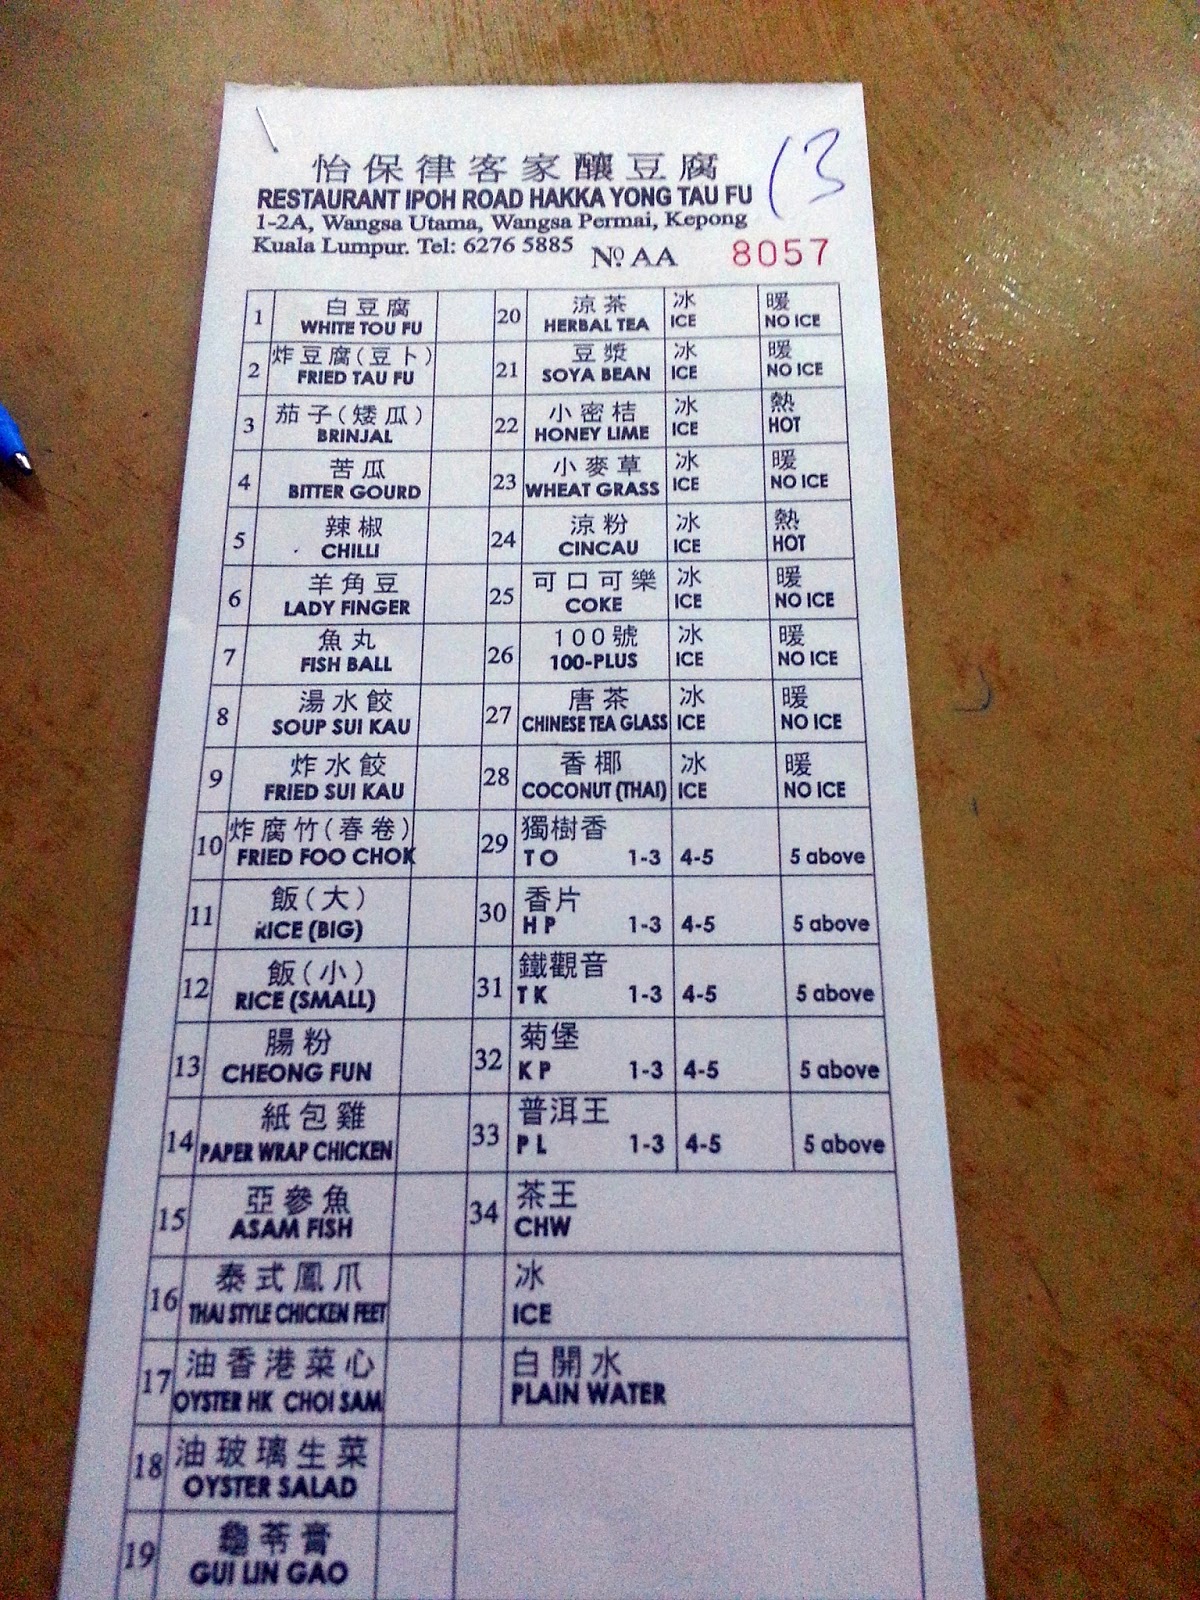 怡保律客家釀豆腐
RESTAURANT IPOH ROAD HAKKA YONG TAU FU
1-2A, Wangsa Utama, Wangsa Permai, Kepong
Kuala Lumpur. Tel: 6276 5885
Nº AA 8057
13
1 白豆腐
WHITE TOU FU
2 炸豆腐(豆卜)
FRIED TAU FU
3 茄子(矮瓜)
BRINJAL
4 苦瓜
BITTER GOURD
5 辣椒
CHILLI
6 羊角豆
LADY FINGER
7 魚丸
FISH BALL
8 湯水餃
SOUP SUI KAU
9 炸水餃
FRIED SUI KAU
10 炸腐竹(春卷)
FRIED FOO CHOK
11 飯(大)
RICE (BIG)
12 飯(小)
RICE (SMALL)
13 腸粉
CHEONG FUN
14 紙包雞
PAPER WRAP CHICKEN
15 亞參魚
ASAM FISH
16 泰式鳳爪
THAI STYLE CHICKEN FEET
17 油香港菜心
OYSTER HK CHOI SAM
18 油玻璃生菜
OYSTER SALAD
19 龜苓膏
GUI LIN GAO
20 涼茶 冰 暖
HERBAL TEA ICE NO ICE
21 豆漿 冰 暖
SOYA BEAN ICE NO ICE
22 小密桔 冰 熱
HONEY LIME ICE HOT
23 小麥草 冰 暖
WHEAT GRASS ICE NO ICE
24 涼粉 冰 熱
CINCAU ICE HOT
25 可口可樂 冰 暖
COKE ICE NO ICE
26 100號 冰 暖
100-PLUS ICE NO ICE
27 唐茶 冰 暖
CHINESE TEA GLASS ICE NO ICE
28 香椰 冰 暖
COCONUT (THAI) ICE NO ICE
29 獨樹香
TO 1-3 4-5 5 above
30 香片
HP 1-3 4-5 5 above
31 鐵觀音
TK 1-3 4-5 5 above
32 菊堡
KP 1-3 4-5 5 above
33 普洱王
PL 1-3 4-5 5 above
34 茶王
CHW
冰
ICE
白開水
PLAIN WATER